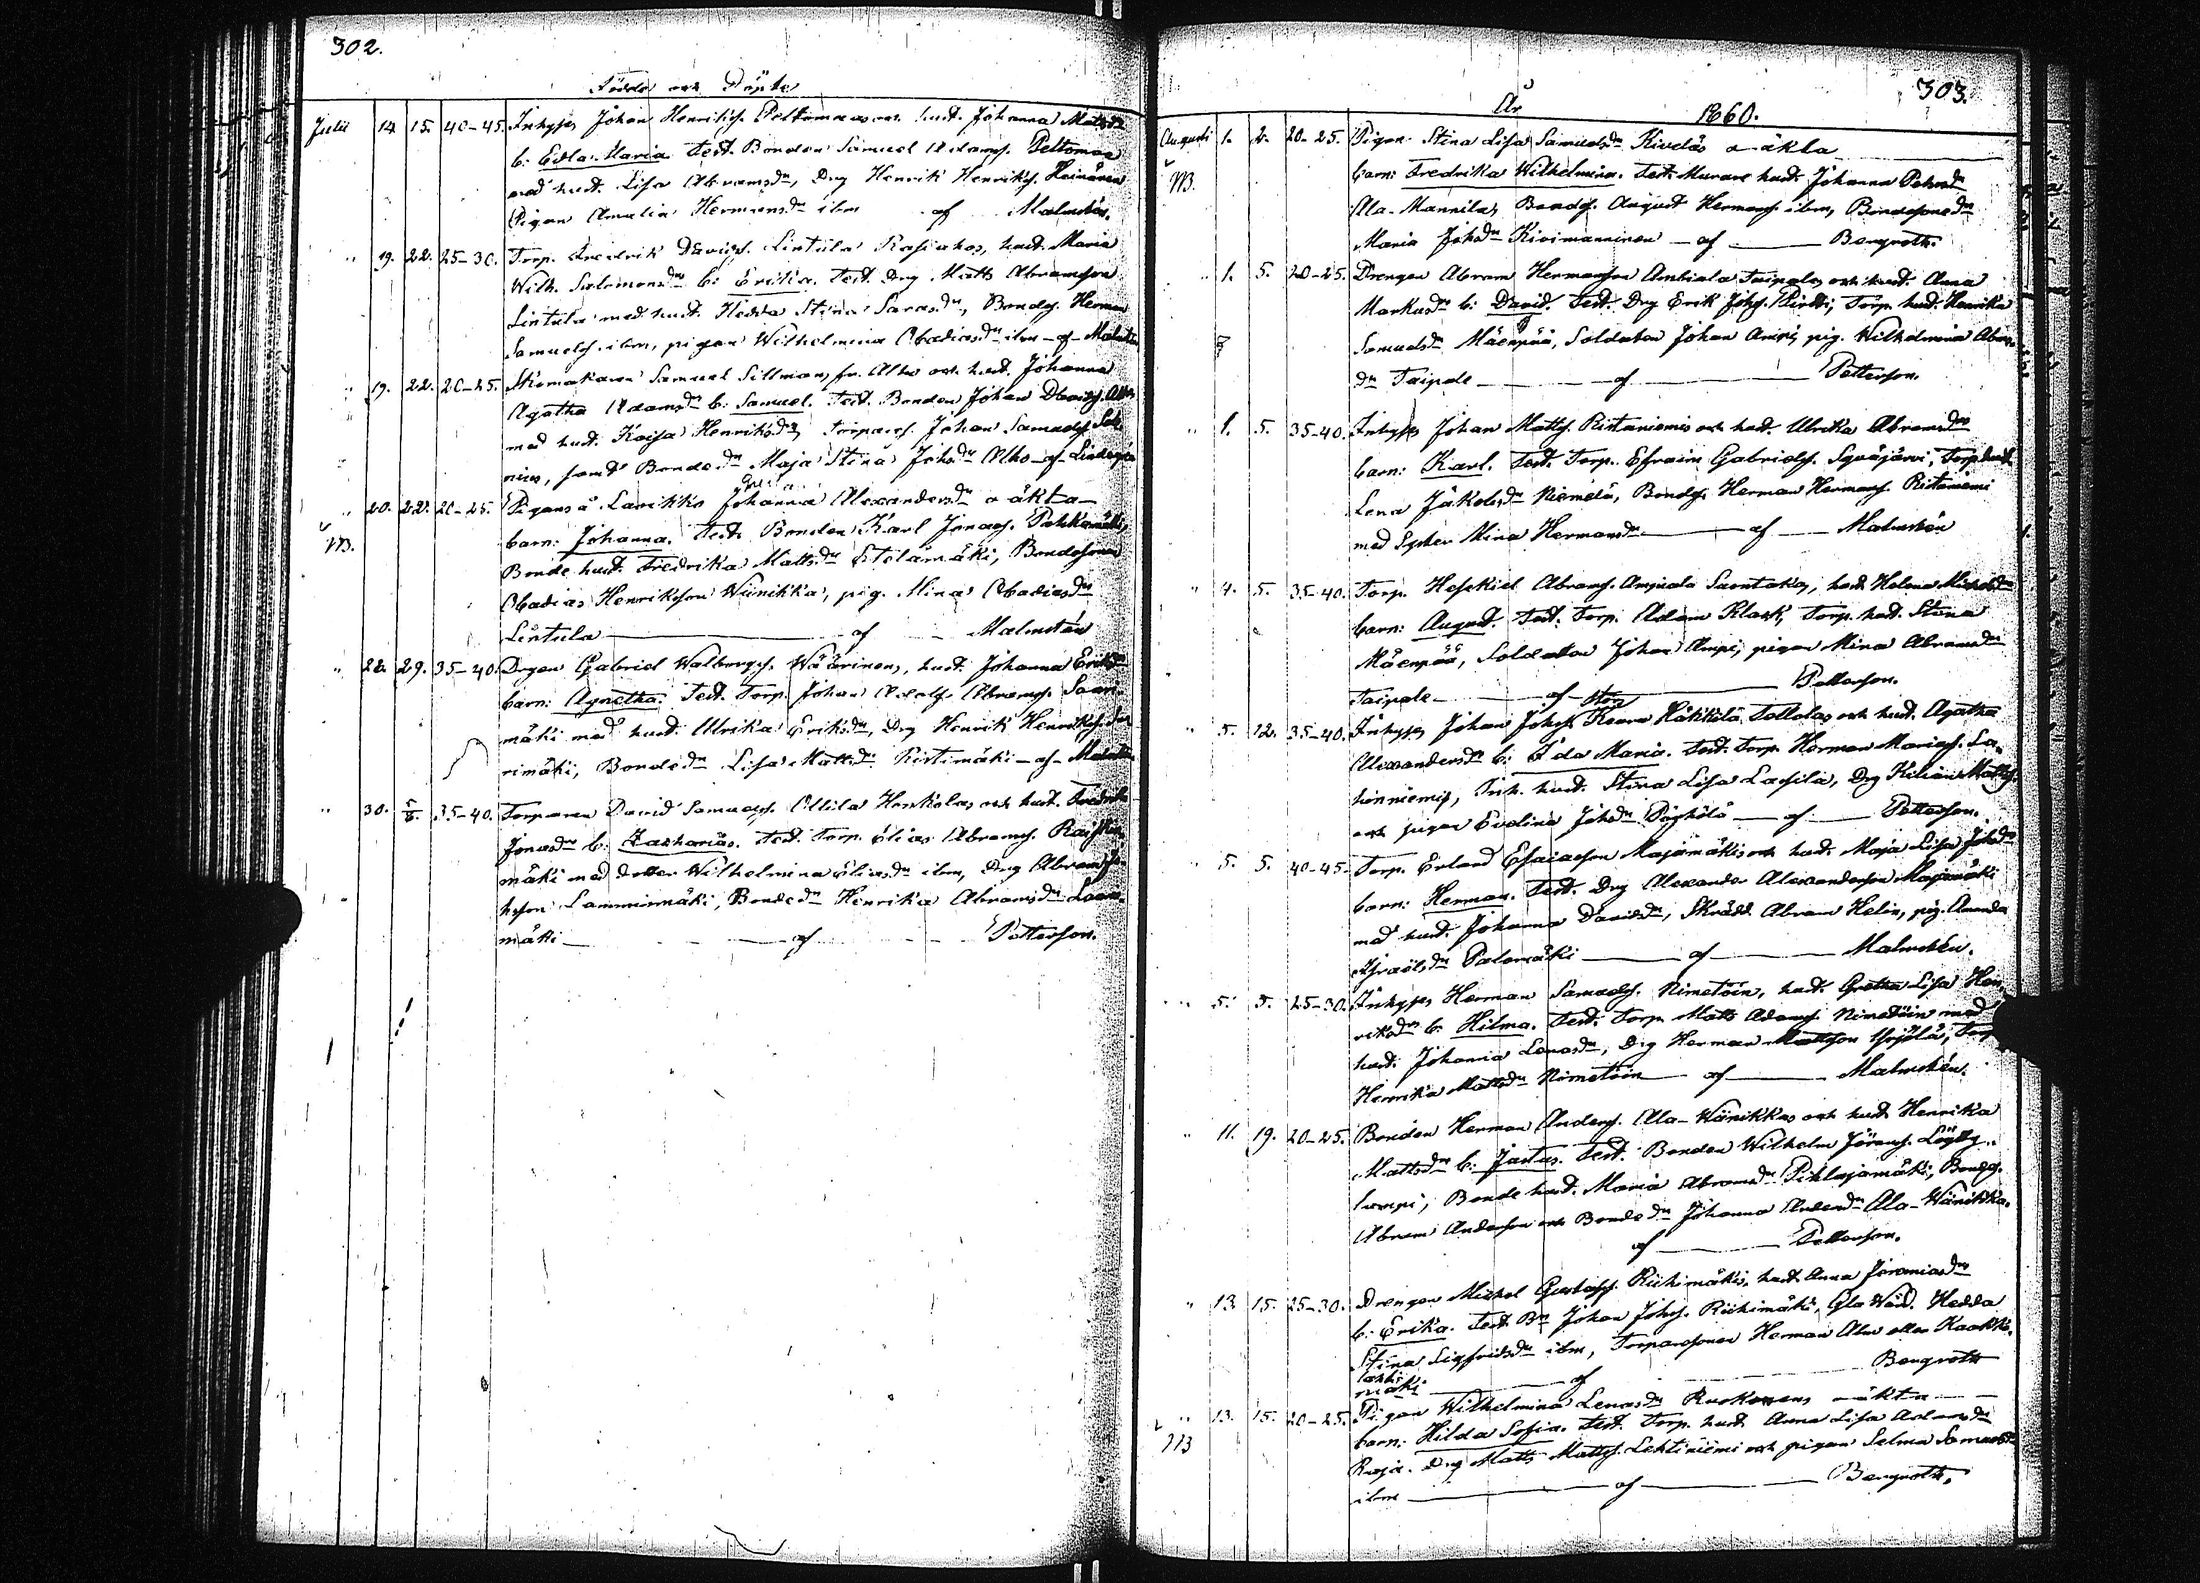 302.
Födde och Döpte
Julii 14. 15. 40-45. Inhyses Johan Henrikss. Peltomaas och hust. Johanna Matsdr
b: Edla Maria. Test. Bonden Samuel Adamss. Peltomaa
med hust. Lisa Abramsdr, Drg Henrik Henrikss. Heinänen
Pigan Amalia Hermansdr ibm af Malmstén.
" 19. 22. 25-30. Torp. Fredrik Davidss. Lintula hust. Maria
Wilh. Salomonsdr b: Erika. Test. Drg Matts Abramsson
Lintula med hust. Hedda Stina Sarasdr, Bondes. Herman
Samuelss. ibm, pigan Wilhelmina Obadiasdr ibm - af - Malmstén
" 19. 22. 20-25. Skomakaren Samuel Sillman, fr. Alho och hust. Johanna
Agatha Adamsdr b: Samuel. Test. Bonden Johan Davidss. Alho
med hust. Kaisa Henriksdr, Torpares. Johan Samuelss.
samt Bondedr Maja Stina Johsdr Alho - af - Lindegren
" 20. 22. 20-25. Pigans å Larikka Johanna Greta Alexandersdr o äkta
NB. barn: Johanna. Test. Bonden Karl Jonass. Pahkamäki,
Bonde hust. Fredrika Mattsdr Etelämäki, Bondesonen
Obadias Henriksson Wiinikka, pig. Mina Obadiasdr
Lintula af Malmstén
" 22. 29. 35-40. Drgen Gabriel Walborgss. Wäärinens, hust. Johanna Eriksdr
barn: Agnetha. Test. Torp. Johan Adolf Abramss. Saari-
mäki med hust. Ulrika Eriksdr, Drg Henrik Henrikss.
rimäki, Bondedr Lisa Mattsdr Ristimäki - af - Malmstén
" 30. 5/8. 35-40. Torparen David Samuelss. Ollila Henkolas och hust. Fredrika
Jonasdr b: Zacharias. Test. Torp. Elias Abramss.
mäki med dotter Wilhelmina Eliasdr ibm, Drg Abram Jo-
hsson Lamminmäki, Bondedr Henrika Abramsdr
mäki af Petterson.
303.
År 1860.
Augusti 1. 2. 20-25. Pigan Stina Lisa Samuelsdr Kiveläs o äkta
NB. barn: Fredrika Wilhelmina. Test. Murare hust. Johanna
Ala-Mannila, Bondes. August Hermanss. ibm, Bondesonsdr
Maria Johsdr Kivimanninen - af - Bengroth.
" 1. 5. 20-25. Drengen Abram Hermansson Anttiala Taipales och hust. Anna
Markusdr b: David. Test. Drg Erik Johss. Pirtti, Torp. hust. Henrika
Samuelsdr Mäenpää, Soldaten Johan Ampi, pig. Wilhelmina Abrams-
dr Taipale af Petterson.
" 1. 5. 35-40. Inhyses Johan Mattss. Ristaniemis och hust. Ulrika Abramsdr
barn: Karl. Test. Torp. Efraim Gabrielss. Syväjärvi, Torp. hust.
Lena Jakobsdr Niemelä, Bondes. Herman Hermanss. Ristaniemi
med Syster Mina Hermansdr af Malmstén
" 4. 5. 35-40. Torp. Hesekiel Abramss. Anjuala hust. Helena
barn: August. Test. Torp. Adam Klask, Torp. hust. Stina
Mäenpää, Soldaten Johan Ampi, pigan Mina Abramsdr
Taipale af Petterson.
" 5. 12. 35-40. Inhyses Johan Johss. Häkkilä Tollolas och hust. Agatha
Alexandersdr b: Ida Maria. Test. Torp. Herman Mariass. La-
hinniemis, Inh. hust. Stina Lisa Lassila, Drg Kilian Mattss.
och pigan Evelina Johsdr Pöyhölä - af - Petterson.
" 5. 5. 40-45. Torp. Erland Esaiasson Majamäkis och hust. Maja Lisa Johsdr
barn: Herman. Test. Drg Alexander Alexandersson Majamäki
med hust. Johanna Davidsdr, Skrädd. Abram Helin, pig. Amanda
Israelsdr Palomäki af Malmstén.
" 5. 5. 25-30. Inhyses Herman Samuelss. Nimetöin, hust. Gretha Lisa Hen-
riksdr b: Hilma. Test. Torp. Matts Adamss. Nimetöin med
hust. Johanna Lenasdr, Drg Herman Mattsson Yrjölä, Torp
Henrika Mattsdr Nimetöin af Malmstén.
" 11. 19. 20-25. Bonden Herman Anderss. Ala-Wänikkas och hust. Henrika
Mattsdr b: Justus. Test. Bonden Wilhelm Jöranss. Löytty-
lampi, Bonde hust. Maria Abramsdr Pihlajamäki, Bondes.
Abram Andersson och Bondedr Johanna Andersdr Ala-Wänikka.
af Petterson.
" 13. 15. 25-30. Drengen Mickel Gustafss. Riihimäkis, hust. Anna Jeremiasdr
b: Erika. Test. Bn Johan Johss. Riihimäki, Gla Wärd. Hedda
Stina Sigfridsdr ibm, Torparesonen Herman Alm eller Kaakki-
mäki af Bengroth
" 13. 15. 20-25. Pigan Wilhelmina Lenasdr Ruokonens o äkta
NB barn: Hilda Sofia. Test. Torp. hust. Anna Lisa Adamsdr
Raja. Drg Matts Mattss. Lehtiniemi och pigan Selma Samuelsdr
ibm af Bengroth.